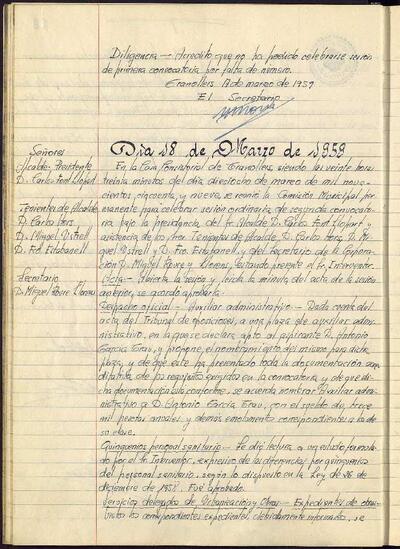 Diligencia — Acredito que no ha podido celebrarse sesión
de primera convocatoria por falta de número.
Granollers 17 de marzo de 1959
El Secretario
Señores
Alcalde-Presidente
D. Carlos Font Llopart
Tenientes de Alcalde
D. Carlos
D. Miguel
D. Fco. Estabanell
Secretario
D. Miguel Llorens
Día 18 de Marzo de 1959
En la Casa Consistorial de Granollers, siendo las veinte horas
treinta minutos del día dieciocho de marzo de mil nove-
cientos cincuenta y nueve, se reunió la Comisión Municipal per-
manente para celebrar sesión ordinaria de segunda convocato-
ria bajo la presidencia del Sr. Alcalde D. Carlos Font Llopart y
asistencia de los Sres. Tenientes de Alcalde, D. Carlos D. Mi-
guel y D. Fco. Estabanell, y del Secretario de la Corporación
D. Miguel y Llorens, estando presente el Sr. Interventor.
Acta — Abierta la sesión y leída la minuta del acta de la sesión
anterior, se acordó aprobarla.
Despacho oficial — Auxiliar administrativo — Dada cuenta del
acta del Tribunal de oposiciones, a una plaza de auxiliar admi-
nistrativo, en la que se declara apto al aspirante D. Antonio
García Grau, y propone el nombramiento del mismo para dicha
plaza, y de que éste ha presentado toda la documentación acre-
ditativa de los requisitos exigidos en la convocatoria, y de que di-
cha documentación la correcta, se acuerda nombrar Auxiliar admi-
nistrativo a D. Antonio García Grau, con el sueldo de trece
mil pesetas anuales y demás emolumentos correspondientes a los de
su clase.
Quinquenios personal sanitario — Se dió lectura a un estado formula-
do por el Sr. Interventor, expresivo de las diferencias por quinquenios
del personal sanitario, según lo dispuesto en la Ley de 26 de
diciembre de 1958. Fué aprobado.
Servicios delegados de Urbanización y Obras — Expedientes de obras
Vistos los correspondientes expedientes, debidamente informados, se